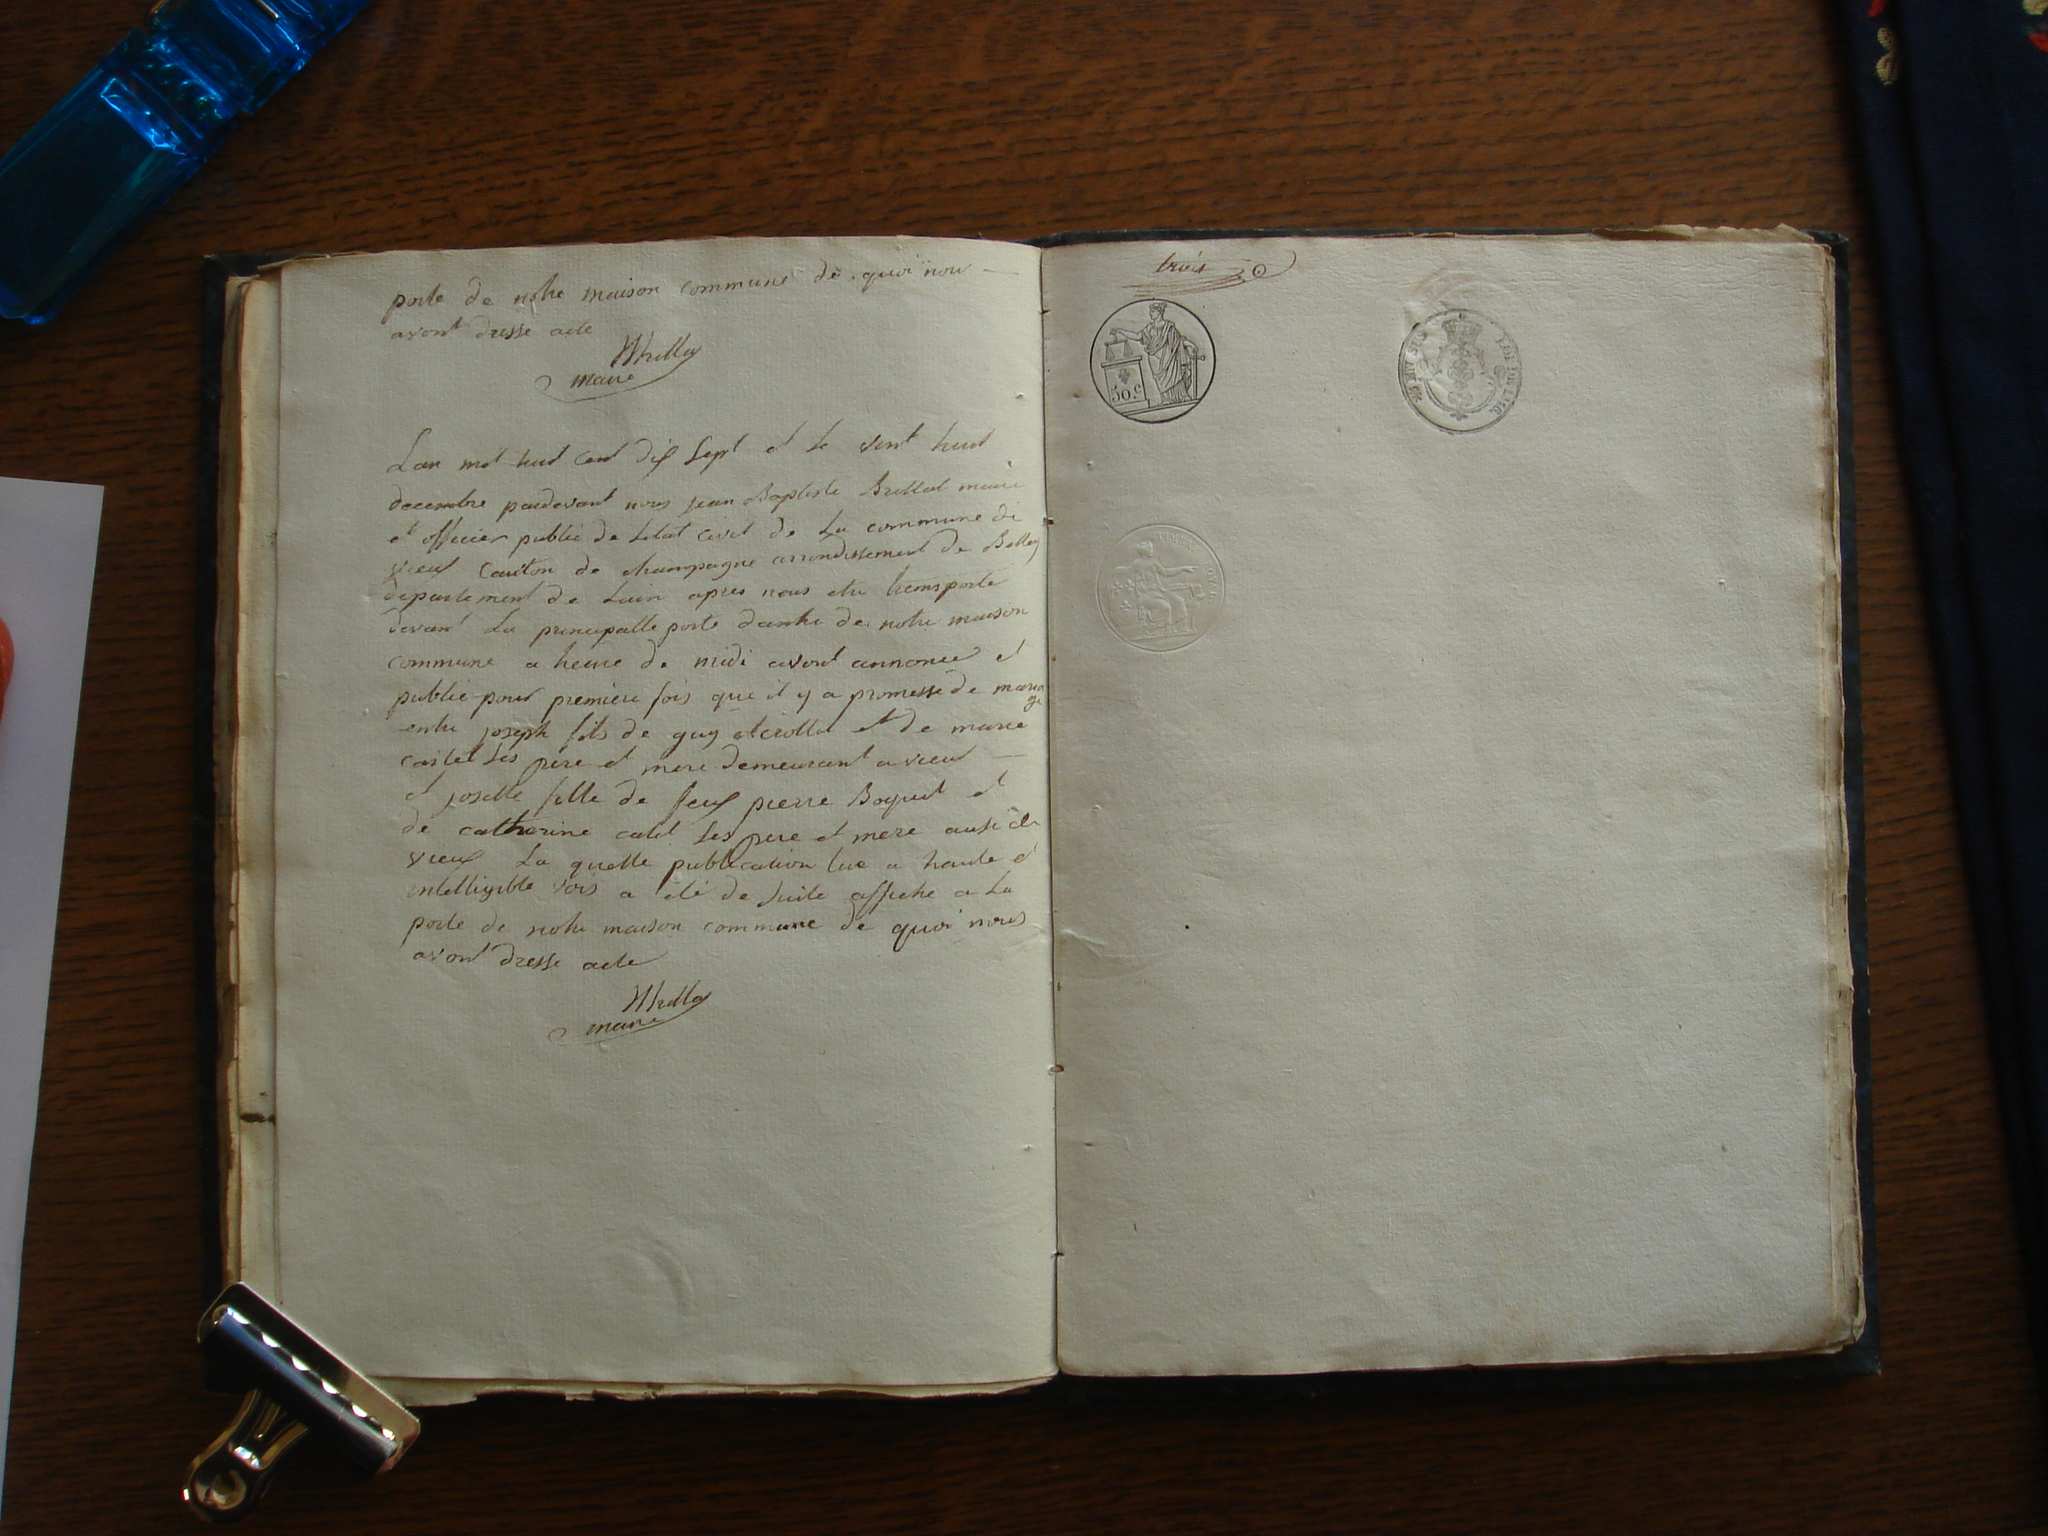 porte de notre maison commune de quoi nou
avont dresse acte
maire
Lan mil huit cent dix Sept et le vint huit
decembre pardevant nous jean Baptiste Brillat maire
et officier public de letat civil de la commune de
vieux canton de champagne arrondissement de Belley
departement de Lain apres nous etre transporte
devant la principalle porte dentre de notre maison
commune a heure de midi avont annonce et
publie pour premiere fois que il y a promesse de mariage
entre joseph fils de guy et de marie
castel ses père et mere demeurant a vieux
et josette fille de feux pierre Boquet et
de catherine ses pere et mere ausi de
vieux La quelle publication lue a haute et
intelligible vois a été de suite affiche a la
porte de notre maison commune de quoi nous
avont dresse acte
maire
trois
50 c